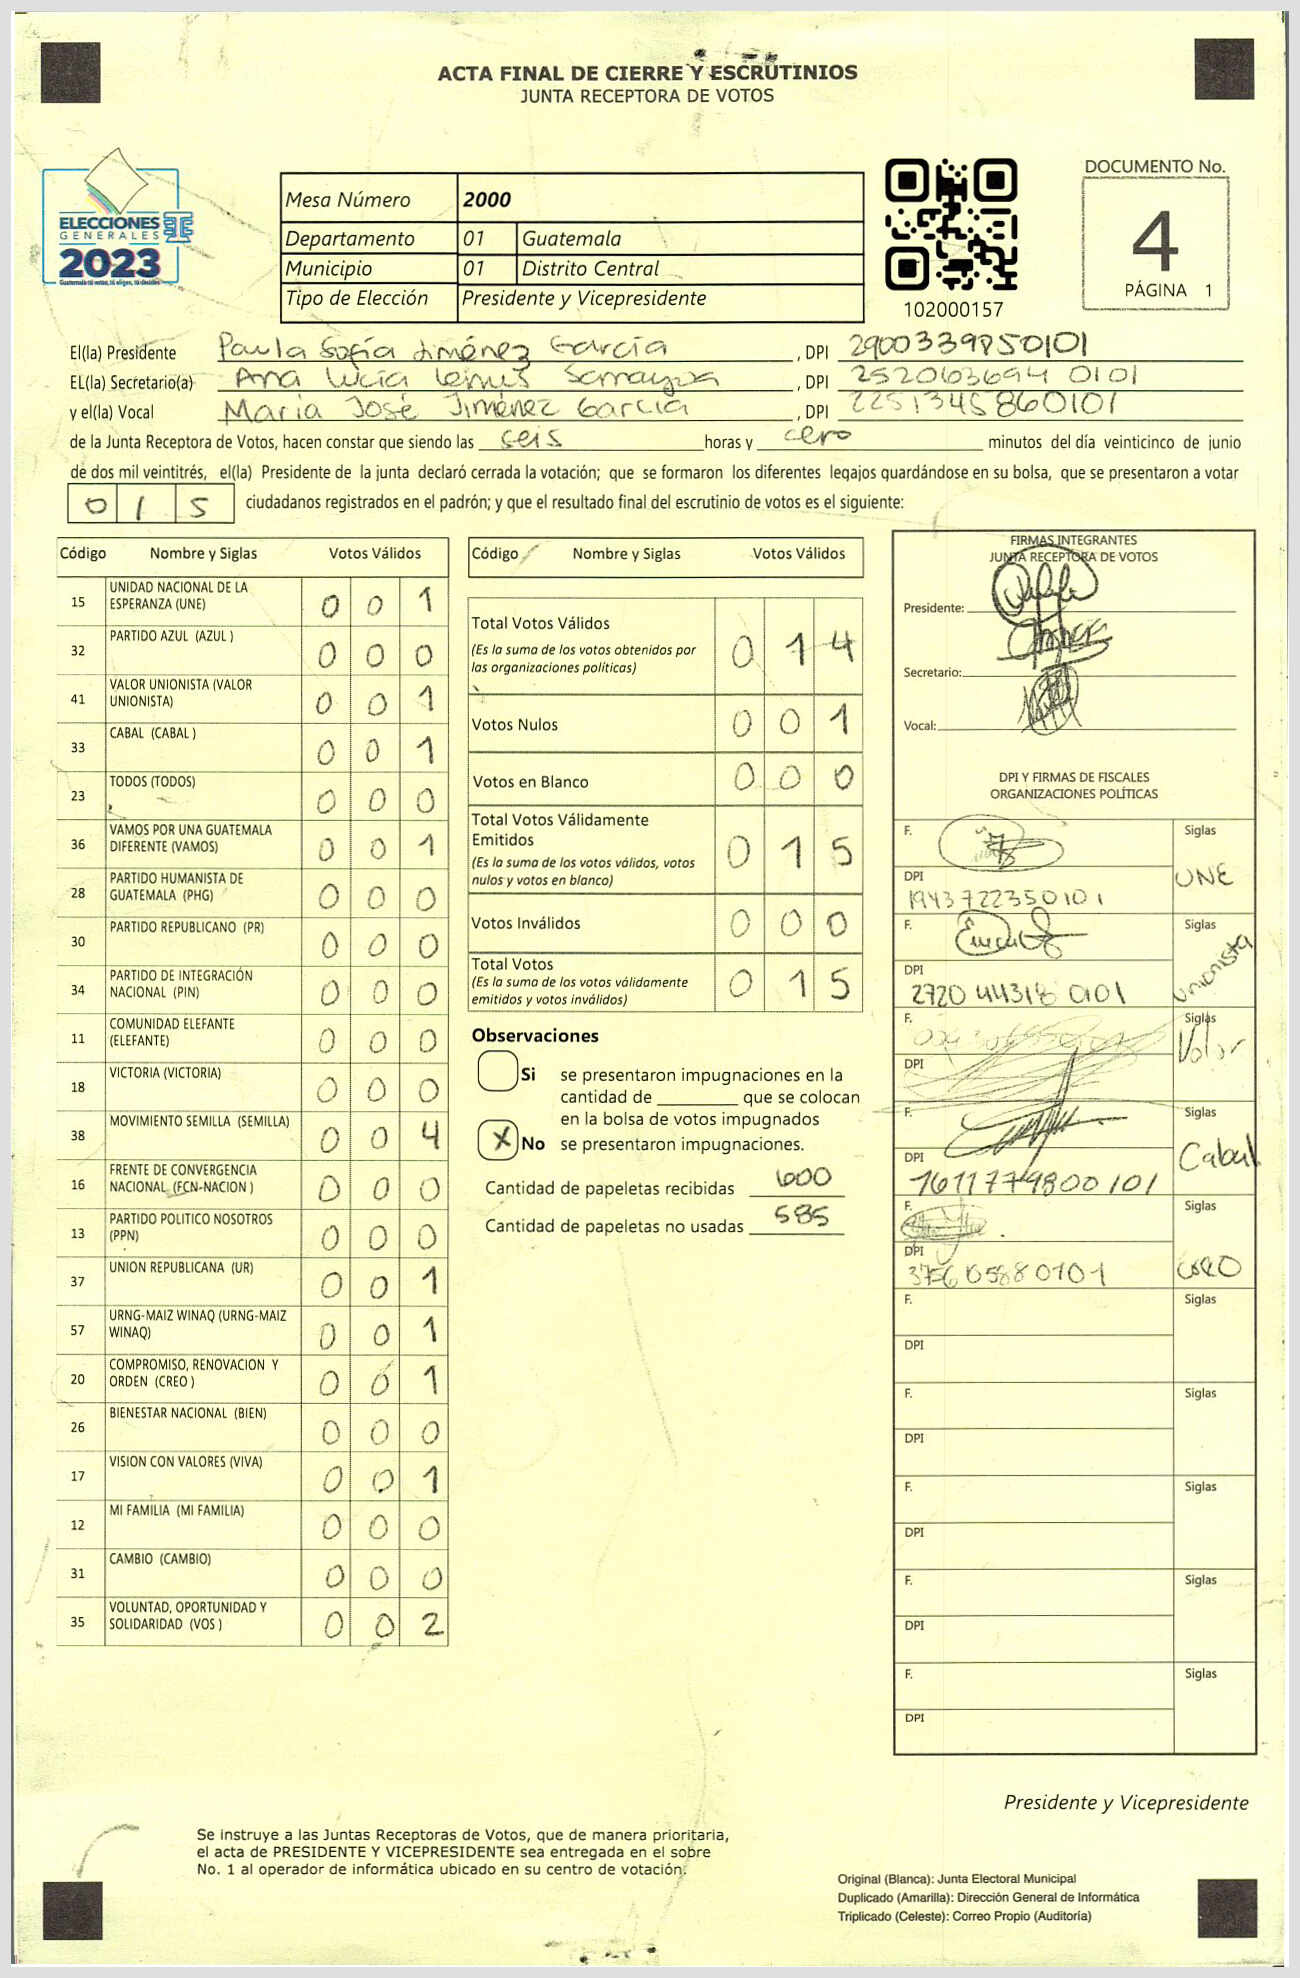 ACTA FINAL DE CIERRE Y ESCRUTINIOS
JUNTA RECEPTORA DE VOTOS
ELECCIONES
GENERALES
2023
Guatemala tú votas, tú eliges, tú decides
Mesa Número 2000
Departamento 01 Guatemala
Municipio 01 Distrito Central
Tipo de Elección Presidente y Vicepresidente
102000157
DOCUMENTO No.
4
PÁGINA 1
El(la) Presidente Paula Sofía Jiménez García, DPI 2900339850101
EL(la) Secretario(a) Ana Lucía Lemus Samayoa, DPI 2520636940101
y el(la) Vocal María José Jiménez García, DPI 2251345860101
de la Junta Receptora de Votos, hacen constar que siendo las seis horas y cero minutos del día veinticinco de junio
de dos mil veintitrés, el(la) Presidente de la junta declaró cerrada la votación; que se formaron los diferentes legajos guardándose en su bolsa, que se presentaron a votar
0 1 5 ciudadanos registrados en el padrón; y que el resultado final del escrutinio de votos es el siguiente:
Código Nombre y Siglas Votos Válidos
15 UNIDAD NACIONAL DE LA ESPERANZA (UNE) 0 0 1
32 PARTIDO AZUL (AZUL ) 0 0 0
41 VALOR UNIONISTA (VALOR UNIONISTA) 0 0 1
33 CABAL (CABAL ) 0 0 1
23 TODOS (TODOS) 0 0 0
36 VAMOS POR UNA GUATEMALA DIFERENTE (VAMOS) 0 0 1
28 PARTIDO HUMANISTA DE GUATEMALA (PHG) 0 0 0
30 PARTIDO REPUBLICANO (PR) 0 0 0
34 PARTIDO DE INTEGRACIÓN NACIONAL (PIN) 0 0 0
11 COMUNIDAD ELEFANTE (ELEFANTE) 0 0 0
18 VICTORIA (VICTORIA) 0 0 0
38 MOVIMIENTO SEMILLA (SEMILLA) 0 0 4
16 FRENTE DE CONVERGENCIA NACIONAL (FCN-NACION ) 0 0 0
13 PARTIDO POLITICO NOSOTROS (PPN) 0 0 0
37 UNION REPUBLICANA (UR) 0 0 1
57 URNG-MAIZ WINAQ (URNG-MAIZ WINAQ) 0 0 1
20 COMPROMISO, RENOVACION Y ORDEN (CREO ) 0 0 1
26 BIENESTAR NACIONAL (BIEN) 0 0 0
17 VISION CON VALORES (VIVA) 0 0 1
12 MI FAMILIA (MI FAMILIA) 0 0 0
31 CAMBIO (CAMBIO) 0 0 0
35 VOLUNTAD, OPORTUNIDAD Y SOLIDARIDAD (VOS ) 0 0 2
Código Nombre y Siglas Votos Válidos
Total Votos Válidos 0 1 4
(Es la suma de los votos obtenidos por
las organizaciones políticas)
Votos Nulos 0 0 1
Votos en Blanco 0 0 0
Total Votos Válidamente
Emitidos 0 1 5
(Es la suma de los votos válidos, votos
nulos y votos en blanco)
Votos Inválidos 0 0 0
Total Votos 0 1 5
(Es la suma de los votos válidamente
emitidos y votos inválidos)
Observaciones
Si se presentaron impugnaciones en la
cantidad de ________ que se colocan
en la bolsa de votos impugnados
X No se presentaron impugnaciones.
Cantidad de papeletas recibidas 600
Cantidad de papeletas no usadas 585
FIRMAS INTEGRANTES
JUNTA RECEPTORA DE VOTOS
Presidente:
Secretario:
Vocal:
DPI Y FIRMAS DE FISCALES
ORGANIZACIONES POLÍTICAS
F. Siglas
DPI UNE
1943722350101
F. Siglas
DPI Unionista
2720443180101
F. Siglas
DPI Valor
F. Siglas
DPI Cabal
1611779800101
F. Siglas
DPI CREO
F. Siglas
DPI
F. Siglas
DPI
F. Siglas
DPI
F. Siglas
DPI
F. Siglas
DPI
Presidente y Vicepresidente
Se instruye a las Juntas Receptoras de Votos, que de manera prioritaria,
el acta de PRESIDENTE Y VICEPRESIDENTE sea entregada en el sobre
No. 1 al operador de informática ubicado en su centro de votación.
Original (Blanca): Junta Electoral Municipal
Duplicado (Amarilla): Dirección General de Informática
Triplicado (Celeste): Correo Propio (Auditoría)